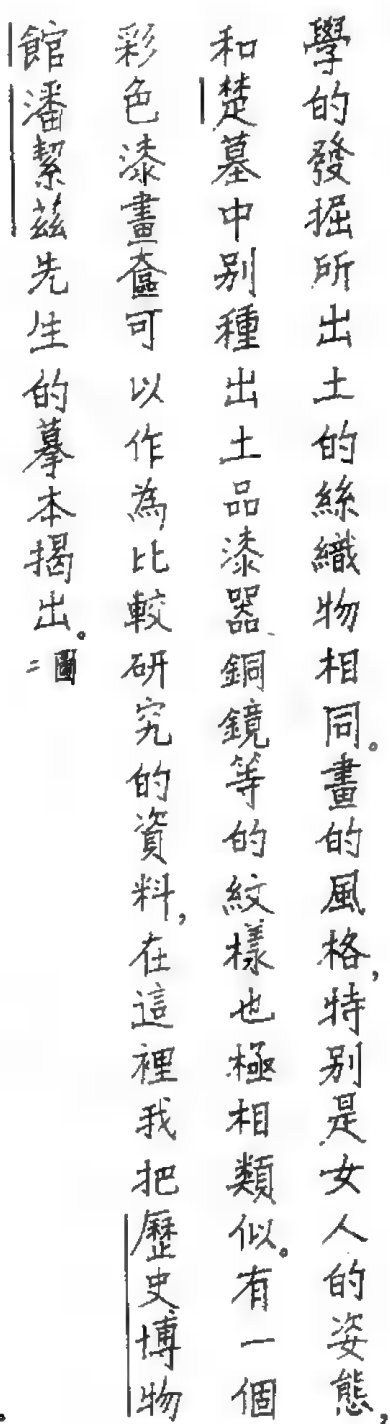 學的發掘所出土的絲織物相同。畫的風格,特别是女人的姿態,
和楚墓中别種出土品漆器、銅鏡等的紋樣也極相類似。有一個
彩色漆畫奩可以作為比較研究的資料,在這裡我把歷史博物
館潘絜茲先生的摹本揭出。圖二